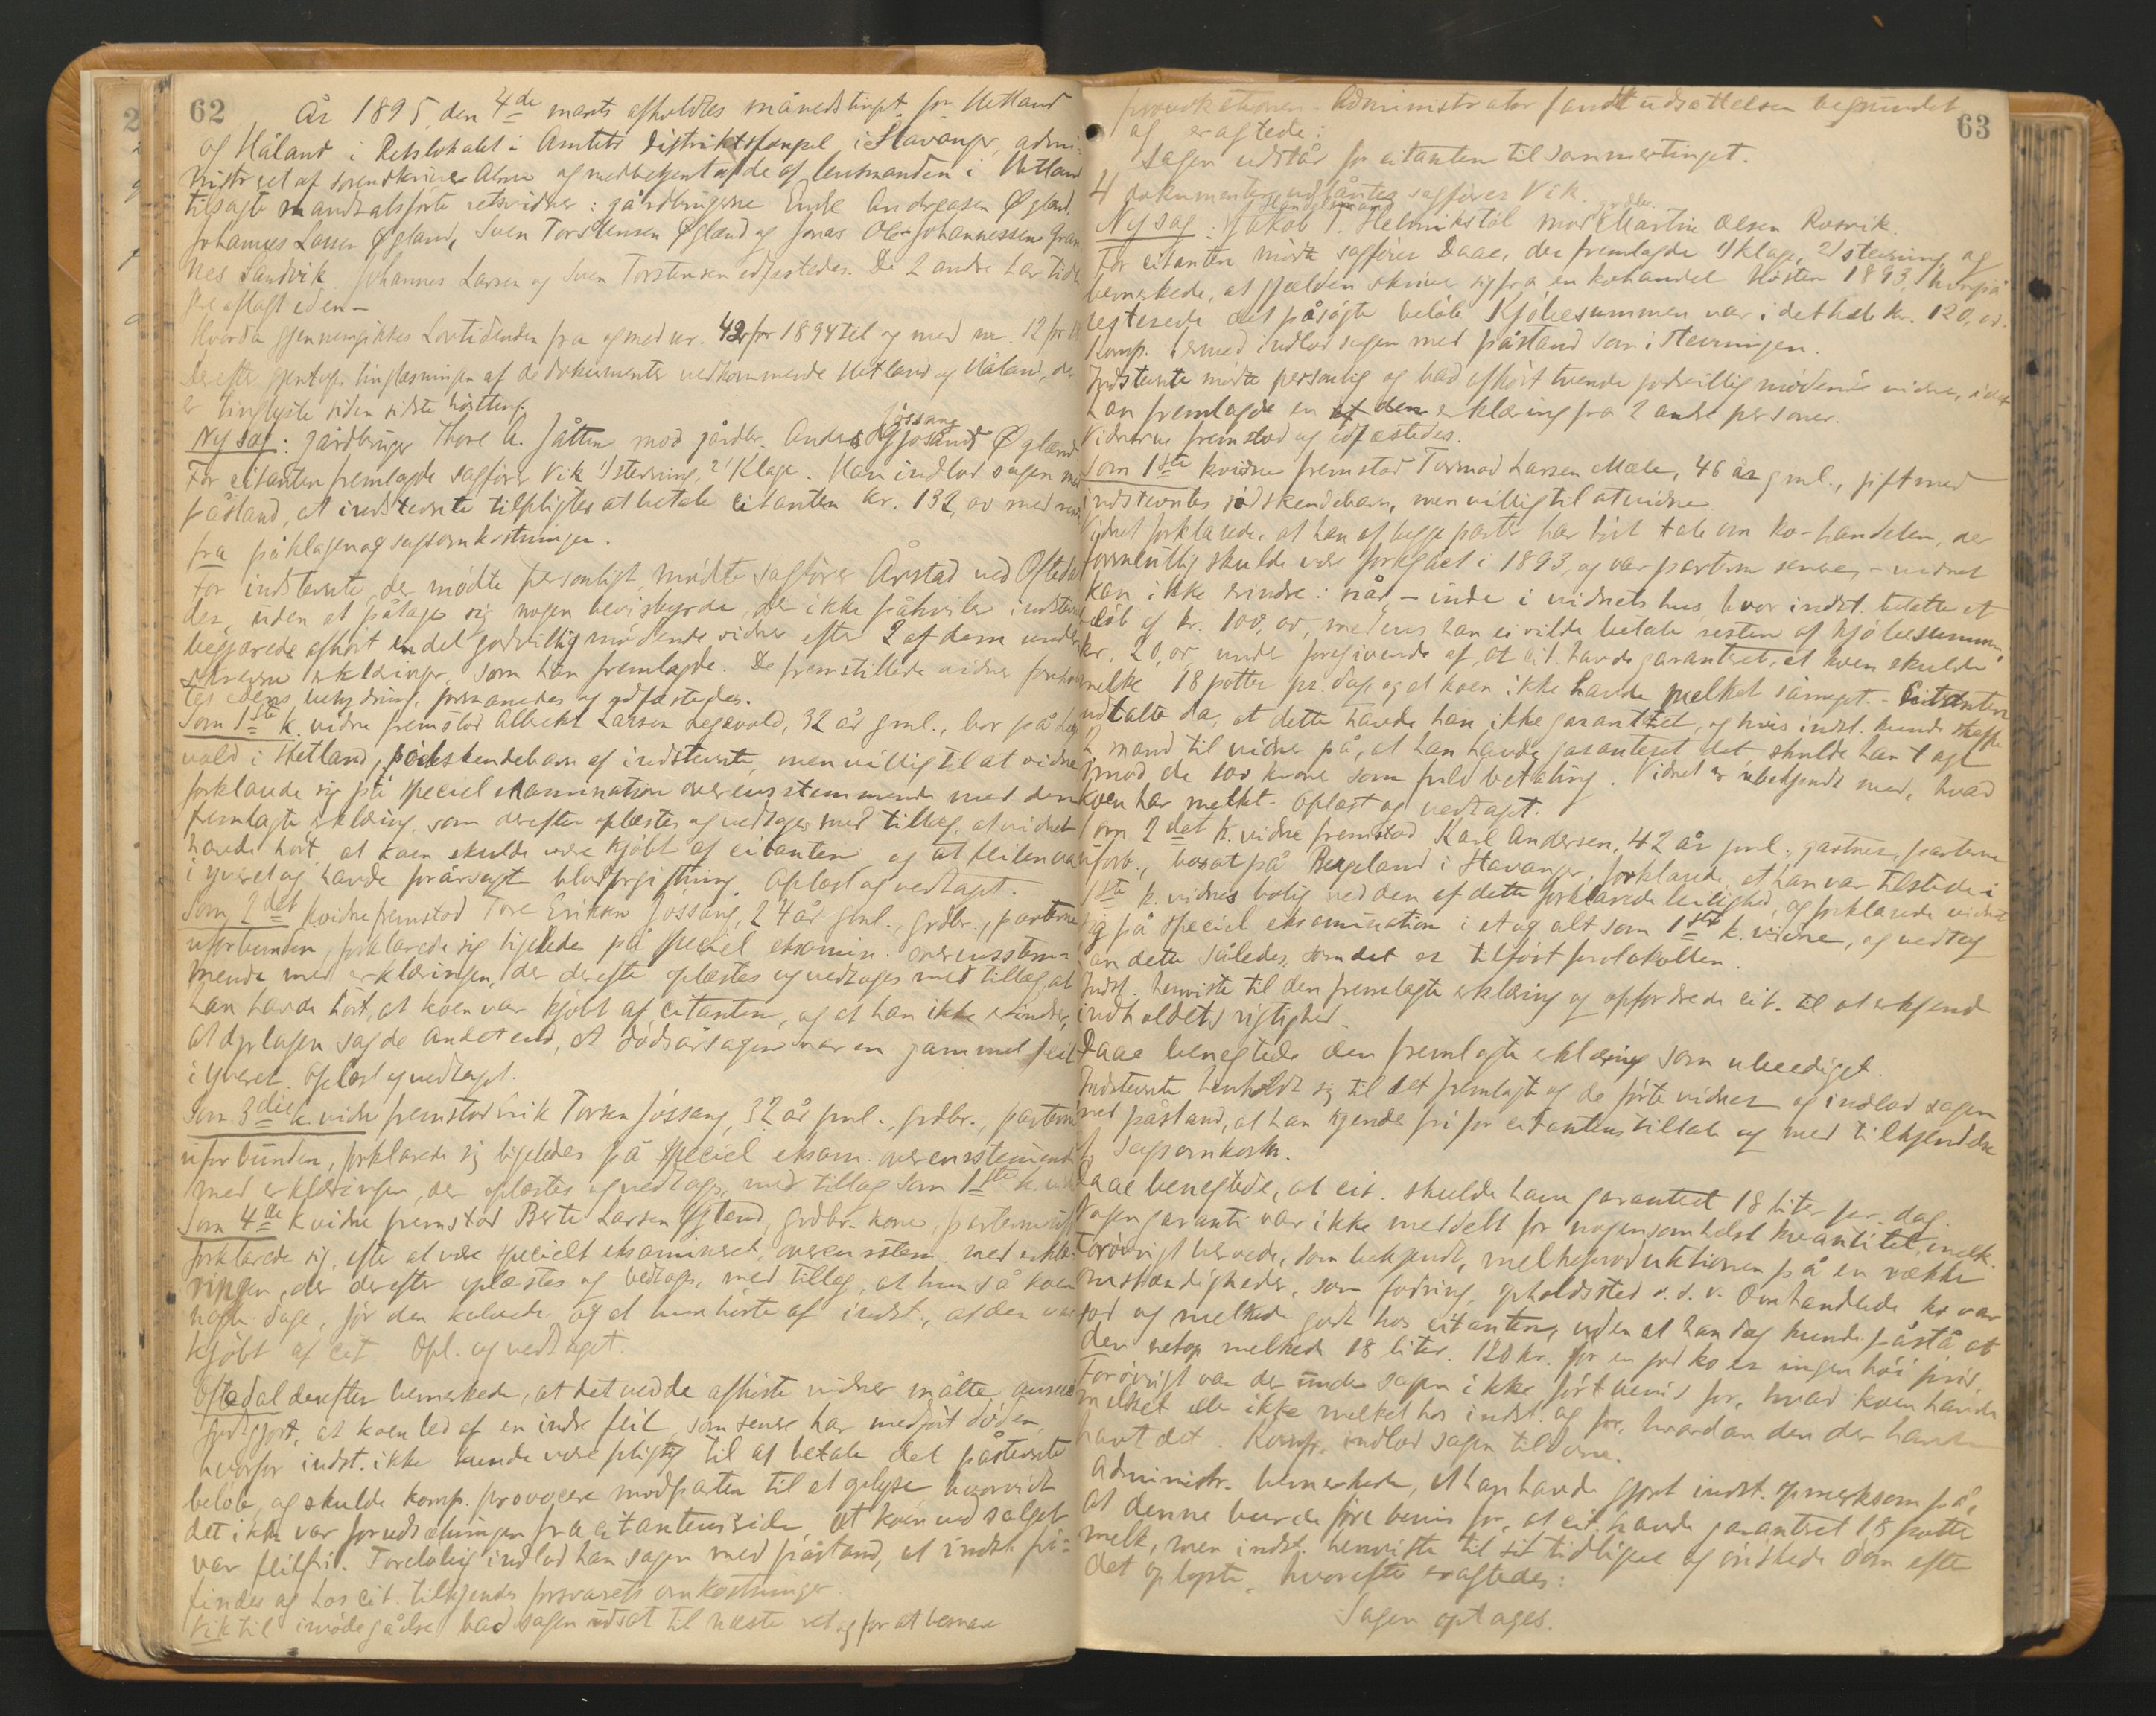 62
År 1895 den 4de marts afholdtes månedstinget for Hetland
og Håland i Retslokalet i Amtets Distriktsfængsel i Stavanger, admi-
nistreret af sorenskriver og medbetjent af de af lensmanden i Hetland
tilsagte mandtalsførte retsvidner: gårdbrugerne Endre Andreasen Øgland,
Johannes Larsen Øgland, Sven Torstensen Øgland og Jonas Ole Johannessen Gran
nes Sandvik. Johannes Larsen og Sven Torstensen edfæstedes. De 2 andre har tid-
aflagt eden -
Hvorda gjennemgikkes Lovtidenden fra og med nr. 42 for 1894 til og med nr. 12 for
Derefter gjentoges tinglæsningen af de dokumenter vedkommende Hetland og Håland, der
er tinglyste siden sidste høstting.
Jössang
Ny sag: gårdbruger Thore A. Jåtten mod gårdbr. Andreas Øgland
For citanten fremlagde sagfører Vik 1/ stevning, 2/ Klage. Han indlod sagen med
påstand, at indstevnte tilpligtes at betale citanten kr. 132,00 med
fra påklagen og sagsomkostninger.
For indstevnte, der mødte personligt mødte sagfører Årstad ved Oftedal
der, uden at påtage sig nogen bevisbyrde, der ikke påhviler indstevnte
begjærede afhørt endel godvillig mødende vidner efter 2 af dem under-
skrevne erklæringer, som han fremlagde. De fremstillede vidner foreholdtes
edens betydning, formanedes og edfæstedes.
Som 1ste k. vidne fremstod Albert Larsen Legevold, 32 år gml., bor på Lege
vold i Hetland, södskendebarn af indstevnte, men villig til at vidne
forklarede sig på speciel examination overensstemmende med den
fremlagte erklæring, som derefter oplæstes og vedtoges med tillæg, at vidnet
havde hørt, at koen skulde være kjøbt af citanten og at feilen var
i yveret og havde forårsaget blodforgiftning. Oplæst og vedtaget.
Som 2det k. vidne fremstod Tore Eriksen Jossang, 24 år gml., grdbr., parterne
uforbunden, forklarede sig ligeledes på speciel eksamin. overensstem-
mende med erklæringen, der derefter oplæstes og vedtoges med tillæg, at
han havde hørt, at koen var kjøbt af citanten, og at han ikke erindrer,
at dyrlægen sagde andet end, at dødsårsagen var en gammel feil
i yveret. Oplæst og vedtaget.
Som 3die k. vidne fremstod Erik Torsen Jössang, 32 år gml., grdbr., parterne
uforbunden, forklarede sig ligeledes på speciel eksam. overensstemmende
med erklæringen, der oplæstes og vedtoges, med tillæg som 1ste k. vidne
Som 4de k vidne fremstod Berte Larsen Øgland, grdbr. kone, parterne uf
forklarede sig, efter at være specielt eksamineret, overensstem. med erklæ-
ringen, der derefter oplæstes og vedtoges, med tillæg, at hun så koen
nogle dage, før den kalvede og at hun hørte af indst., at den var
kjøbt af cit. Opl. og vedtaget.
Oftedal derefter bemerkede, at det ved de afhørte vidner måtte ansees
godtgjort, at koen led af en indre feil, som senere har medført døden,
hvorfor indst. ikke kunde være pligtig til at betale det påstevnte
beløb, og skulde komp. provocere modparten til at oplyse hvorvidt
det ikke var forudsætningen fra citantens side, at koen ved salget
var feilfri. Foreløbig indlod han sagen med påstand, at indst. fri-
findes og hos cit. tilkjendes forsvarets omkostninger.
Vik til imødegåelse bad sagen udsat til næste ret og for at besvare
63
provokationen. Administrator fandt udsættelsen begrundet
og eragtede:
Sagen udstår for citanten til sommertinget.
4 dokumenter udlåntes sagfører Vik.
grdbr.
Ny sag: Jakob T. Helvikstøl mod Martin Olsen Rosvik.
For citanten mødte sagfører Daae, der fremlagde 1/ klage, 2/ stevning og
bemerkede, at gjælden skriver sig fra en kohandel Høsten 1893, hvorpå
resterede det påsøgte beløb. Kjøbesummen var i det hele kr. 120,00.
Komp. dermed indlod sagen med påstand som i stevningen.
Indstevnte mødte personlig og bad afhørt tvende godvillig mødende vidner, idet
han fremlagde en erklæring fra 2 andre personer.
Vidnerne fremstod og edfæstedes.
Som 1ste k vidne fremstod Tormod Larsen Mæle, 46 år gml., gift med
indstevntes södskendebarn, men villig til at vidne
Vidnet forklarede, at han af begge parter har hørt tale om ko-handelen, der
formentlig skulde være foregået i 1893, og var parterne senere, - vidnet
kan ikke erindre: når - inde i vidnets hus, hvor indst. betalte et
beløb af kr. 100,00, medens han ei vilde betale resten af kjøbesummen,
kr. 20,00 under foregivende af, at cit. havde garanteret, at koen skulde
melke 18 potter pr. dag, og at koen ikke havde melket så meget. - Citanten
udtalte da, at dette havde han ikke garanteret, og hvis indst. kunde skaffe
2 mand til vidner på, at han havde garanteret det skulde han tage
imod de 100 kroner som fuld betaling. Vidnet er ubekjendt med, hvad
koen har melket. Oplæst og vedtaget.
Som 2det k. vidne fremstod Karl Andersen, 42 år gml., gartner, parterne
uforb., bosat på Bergeland i Stavanger, forklarede, at han var tilstede i
1ste k. vidnes bolig ved den af dette forklarede leilighed, og forklarede vidnet
sig på speciel eksamination i et og alt som 1ste k. vidne, og vedtog
han dette således, som det er tilført protokollen.
Indst. henviste til den fremlagte erklæring og opfordrede cit. til at erkjende
indholdets rigtighed.
Daae benegtede den fremlagte erklæring som ubeediget.
Indstevnte henholdt sig til det fremlagte og de førte vidner og indlod sagen
med påstand, at han kjendes fri for citantens tiltale og med tilkjendelse
af sagsomkostn.
Daae benegtede, at cit. skulde have garanteret 18 liter per dag.
Nogen garanti var ikke meddelt for nogensomhelst kvantitet melk.
Forøvrigt beroede, som bekjendt, melkeproduktionen på en række
omstændigheder, som fodring, opholdssted o. s. v. Omhandlede ko var
god og melkede godt hos citanten, uden at han dog kunde påstå at
den netop melkede 18 liter. 120 kr. for en god ko er ingen høi pris.
Forøvrigt var der under sagen ikke ført bevis for, hvad koen havde
melket eller ikke melket hos indst. og for, hvordan den der havde
havt det. Komp. indlod sagen til doms.
Administr. bemerkede, at han havde gjort indst. opmerksom på,
at denne burde føre bevis for, at cit. havde garanteret 18 potter
melk, men indst. henviste til sit tidligere og ønskede dom efter
det oplyste, hvorefter eragtedes:
Sagen optages.